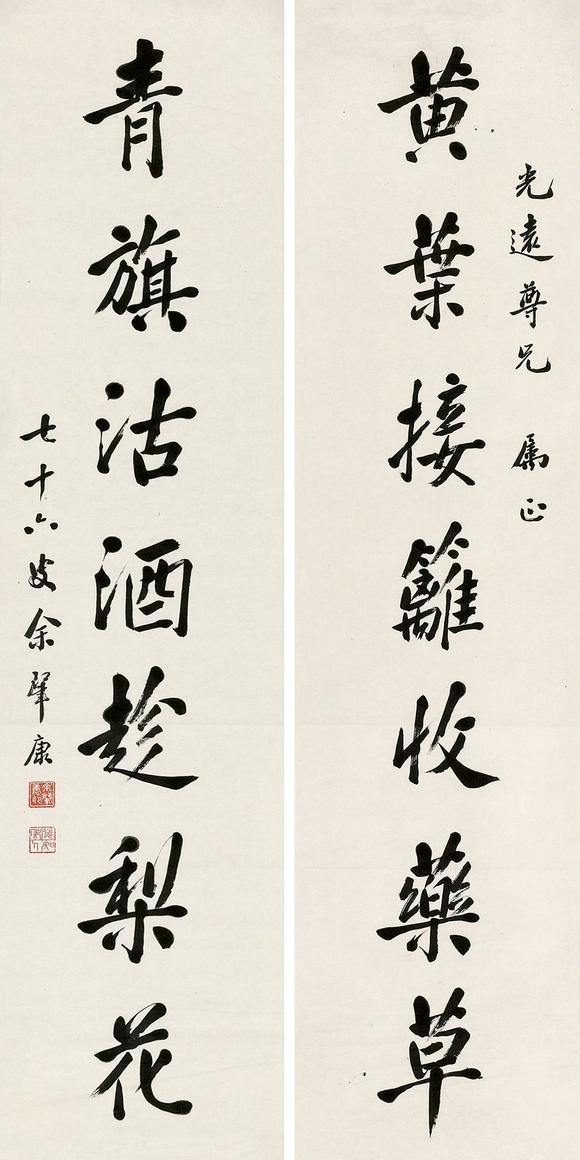 光遠尊兄 属正
黄葉接籬收藥草
青旗沽酒趁梨花
七十六叟余肇康